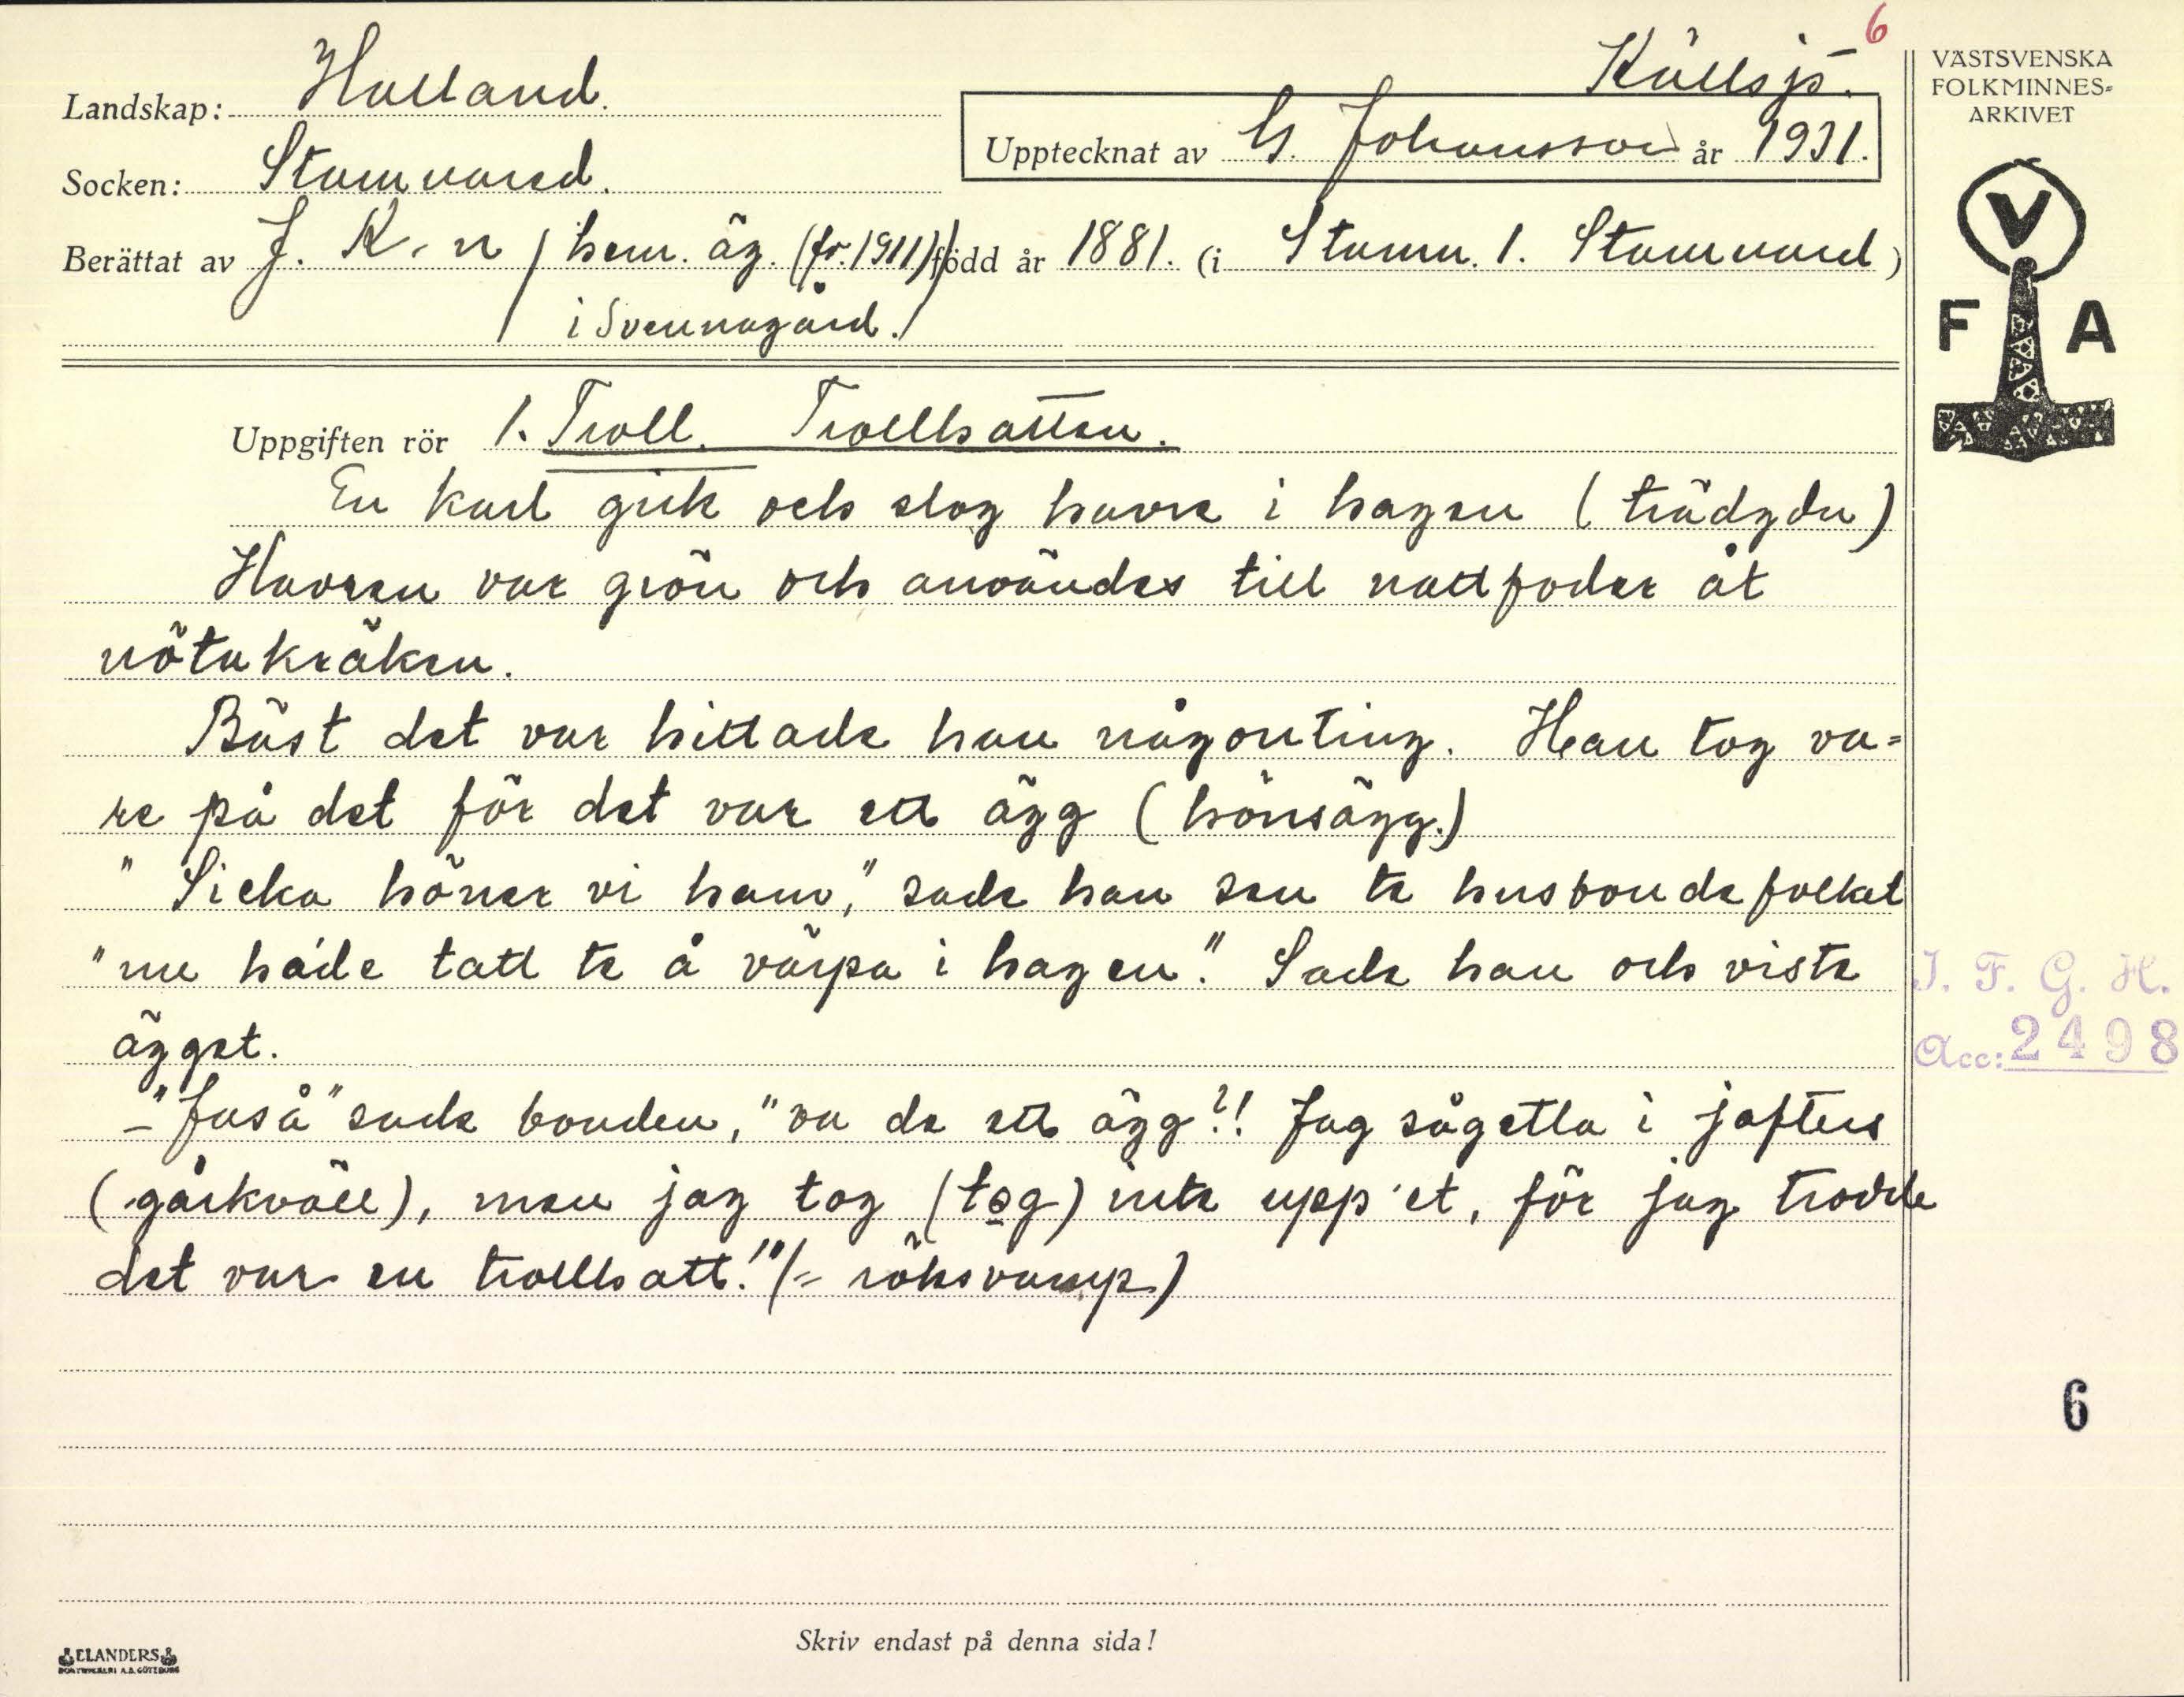 6
Källsjö.
Landskap: Halland.
Socken: Stamnared.
Upptecknat av G. Johansson år 1931.
Berättat av J. K. n / hem. äg. (fr. 1911) född år 1881. (i Stamn. 1. Stamnared)
i Svennagård./
VÄSTSVENSKA
FOLKMINNES-
ARKIVET
V
F A
Uppgiften rör 1. Troll. Trollhatten.
En karl gick och slog havre i hagen (trädgdn)
Havren var grön och användes till nattfoder åt
nötakräken.
Bäst det var hittade han någonting. Han tog va=
re på det för det var ett ägg (hönsägg.)
" Sicka höner vi haur," sade han sen te husbondefolket
"nu håde tatt te å värpa i hagen." Sade han och viste
ägget.
-"Jaså" sade bonden, "va de ett ägg?! Jag sågetla i jaftens
(gårkväll), men jag tog (tog) inte upp'et, för jag trodde
det var en trollhatt!" (= röksvamp)
I. F. G. H.
Acc: 2498
6
Skriv endast på denna sida!
ELANDERS
BOKTRYCKERI A.B. GÖTEBORG